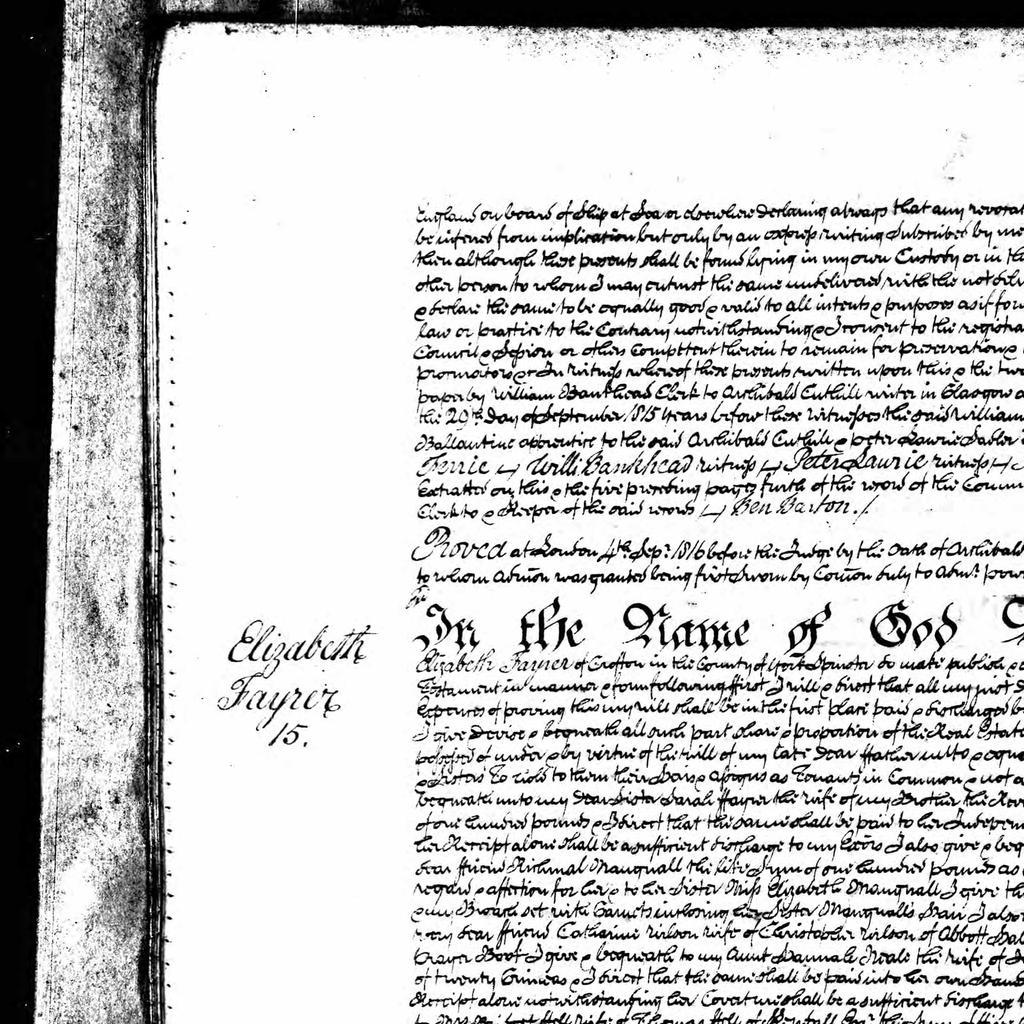 England on board of Ship at Sea or elsewhere declaring always that any revocat
be infered from implication but only by an express writing subscribed by me
then although these presents shall be found lying in my own Custody or in th
other person to whom I may entrust the same undelivered with the not deliv
& declare the same to be equally good & valid to all intents & purposes as if for
law or practice to the Contrary notwithstanding & I consent to the registra
Council & Session or others Competent therein to remain for preservation &
promulators & In witness whereof these presents written upon this & the two
paper by William Bankhead Clerk to Archibald Cuthill writer in Glasgow a
the 29th Day of September 1815 Years before these Witnesses the said William
Ballantine apprentice to the said Archibald Cuthill & Peter Lawrie Sadler
Ferrie Willm Bankhead witness Peter Laurie witness
Extracted on this & the five preceding pages furth of the record of the Coun
Clerk to & Keeper of the said records Ben Barton./
Proved at London 4th Sepr 1816 before the Judge by the Oath of Archibald
to whom Admon was granted being first Sworn by Comon duly to Admr pow
In the Name of God
Elizabeth
Fayrer
15.
Elizabeth Fayrer of Crofton in the County of York Spinster do make publish &
Testament in manner & form following first I will & direct that all my just D
Expences of proving this my will shall be in the first place paid & discharged b
I give devise & bequeath all such part share & proportion of the Real Estate
possessed of under & by virtue of the will of my late dear ffather unto & equa
& Sisters To hold to them their Heirs & Assigns as Tenants in Common & not a
bequeath unto my dear Sister Sarah ffayrer the wife of my Brother the Rev
of one hundred pounds & I direct that the same shall be paid to her Indepen
her Receipt alone shall be a sufficient discharge to my Exors I also give & beq
dear ffriend Richmal Mangnall the like Sum of one hundred pounds as
regard & affection for her & to her Sister Miss Elizabeth Mangnall I give th
& my Broach set with Garnets inclosing her Sister Mangnall's Hair I also
very dear ffriend Catharine Wilson wife of Christopher Wilson of Abbott Hal
Prayer Book I give & bequeath to my Aunt Hannah Neale the wife of
of twenty Guineas & I direct that the same shall be paid into her own Hand
Receipt alone notwithstanding her Coverture shall be a sufficient discharge
wife of Thomas Holl of